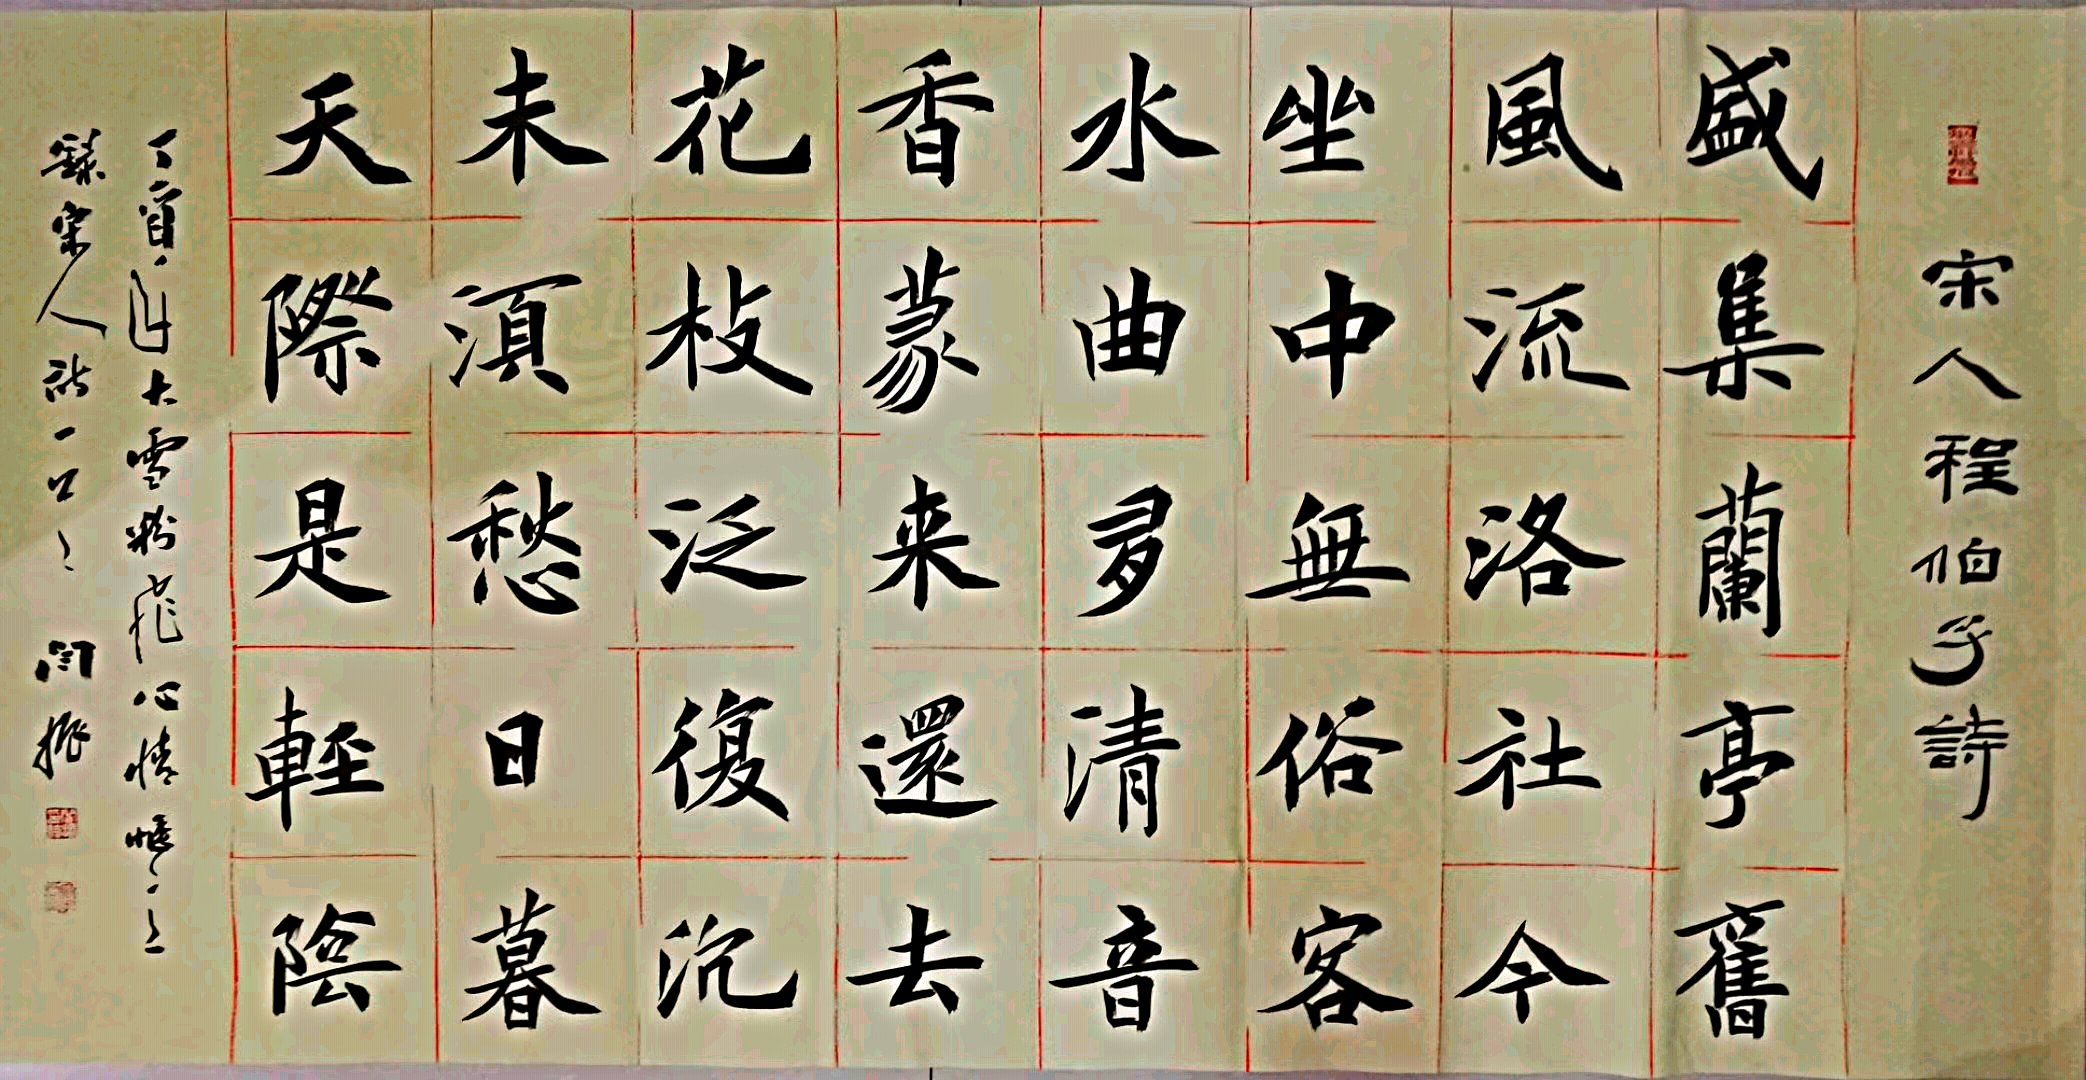 宋人程伯子詩
盛集蘭亭舊
風流洛社今
坐中無俗客
水曲多清音
香篆来還去
花枝泛復沉
未須愁日暮
天際是輕陰
丁酉年大雪粉飛心情惬
録宋人詩一首 閆振